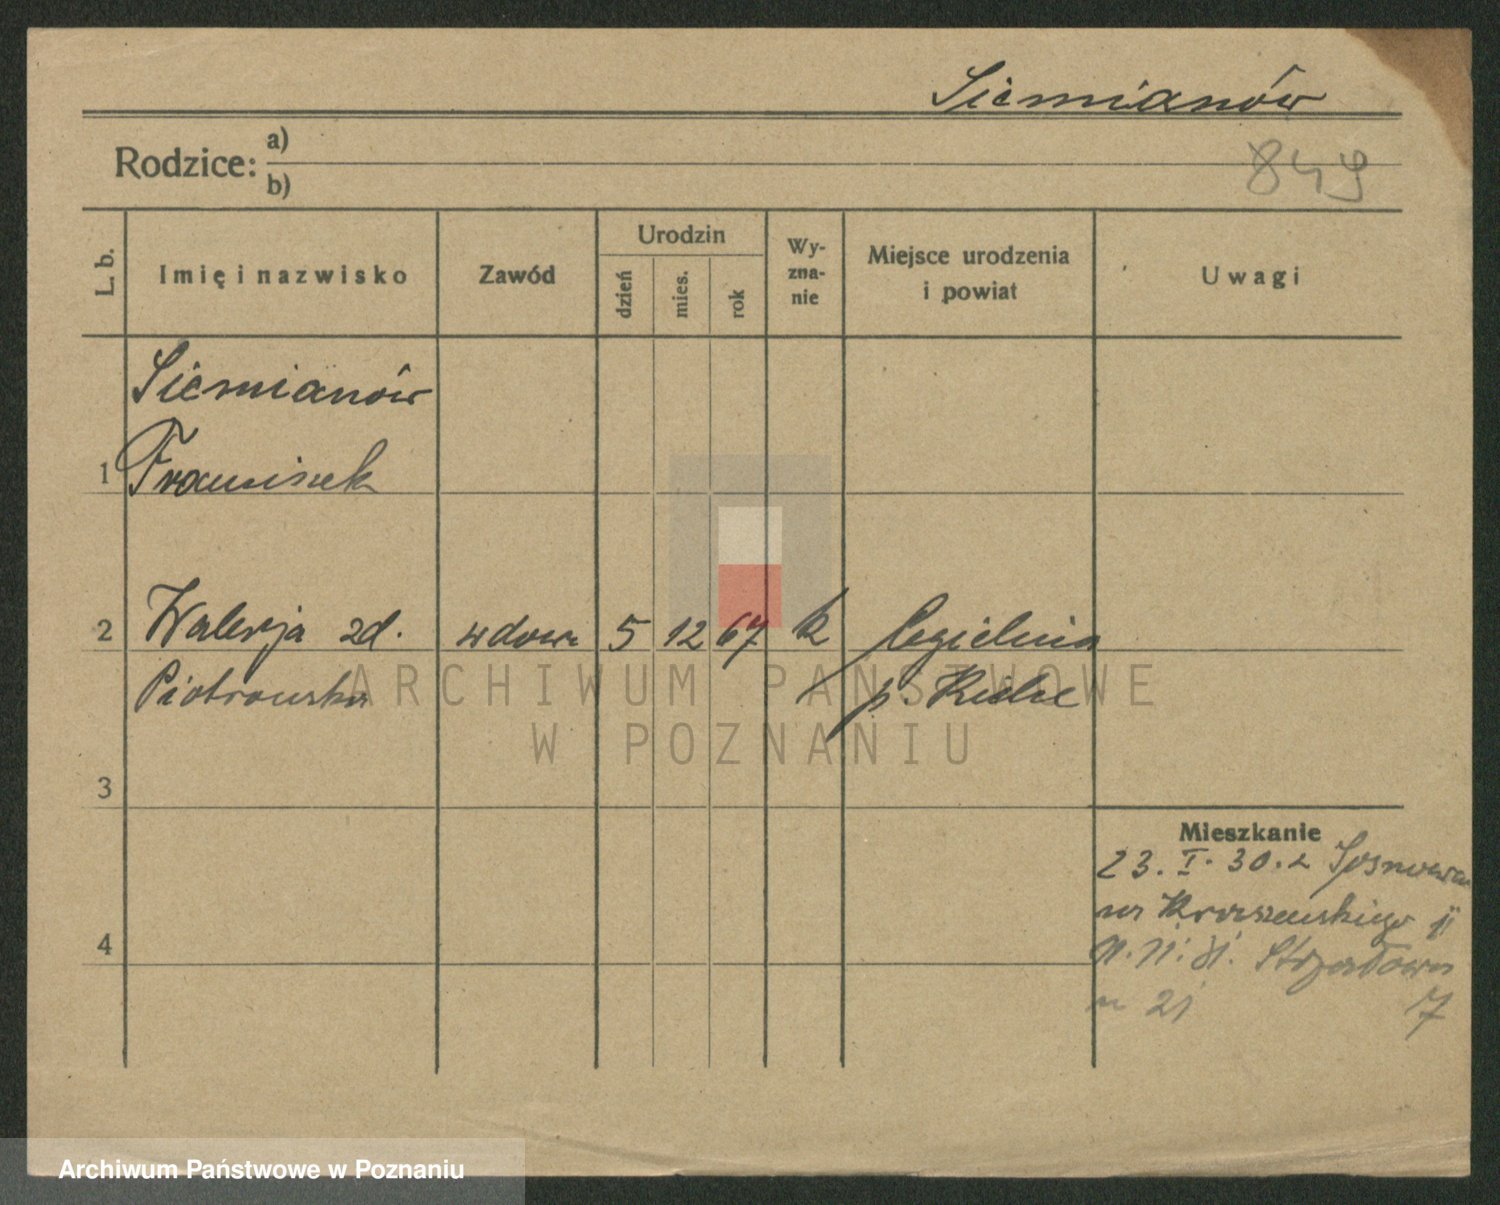 Siemianów
849
Rodzice: a)
b)
L. b.
Imię i nazwisko
Zawód
Urodzin
dzień
mies.
rok
Wy-
zna-
nie
Miejsce urodzenia
i powiat
Uwagi
Siemianów
1 Franciszek
2 Walerja zd. wdowa 5 12 67 k Cegielnia
Piotrowska p. Kielce
3
4
Mieszkanie
23. I. 30. z Sosnowca
na Kraszewskiego
Strzałowa
21 7
ARCHIWUM PAŃSTWOWE
W POZNANIU
Archiwum Państwowe w Poznaniu